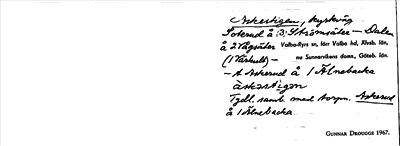 Askestigen, kyrkväg
Soterud å 3; Strömsäter — Dalen
å 2 Vågsäter Valbo-Ryrs sn, förr Valbo hd, Älvsb. län,
(1 Vaskull) — nu Sunnervikens doms., Göteb. län.
— A Askerud å 1 Älnebacka
àskəstigən
Tydl. samb. med torpn. Askerud
å 1 Älnebacka.
GUNNAR DROUGGE 1967.